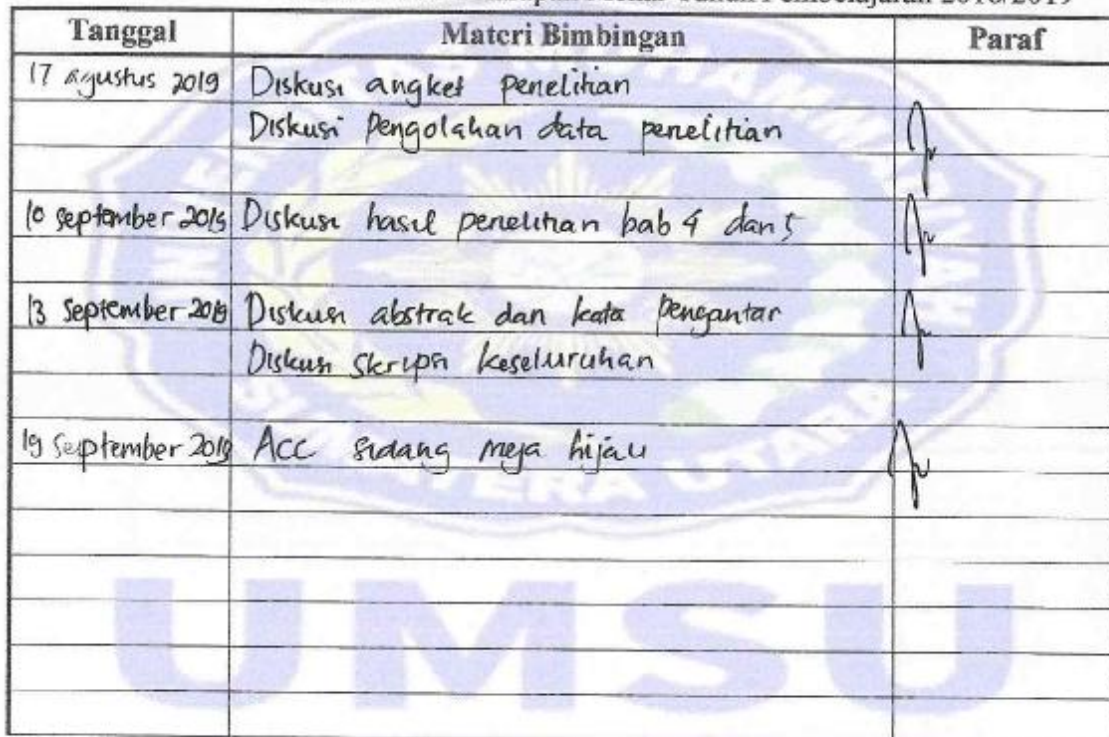 Tahun Pembelajaran 2018/2019
Tanggal Materi Bimbingan Paraf
17 Agustus 2019 Diskusi angket penelitian
Diskusi Pengolahan data penelitian
10 September 2019 Diskusi hasil penelitian bab 4 dan 5
13 September 2019 Diskusi abstrak dan kata pengantar
Diskusi Skripsi keseluruhan
19 September 2019 Acc sidang meja hijau
UMSU